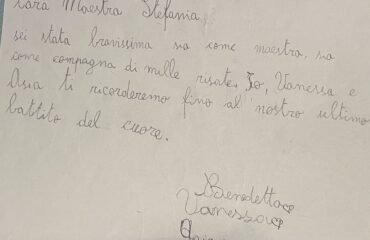 cara Maestra Stefania,
sei stata bravissima sia come maestra, sia
come compagna di mille risate. Io, Vanessa e
Asia ti ricorderemo fino al nostro ultimo
battito del cuore.
Benedetta
Vanessa